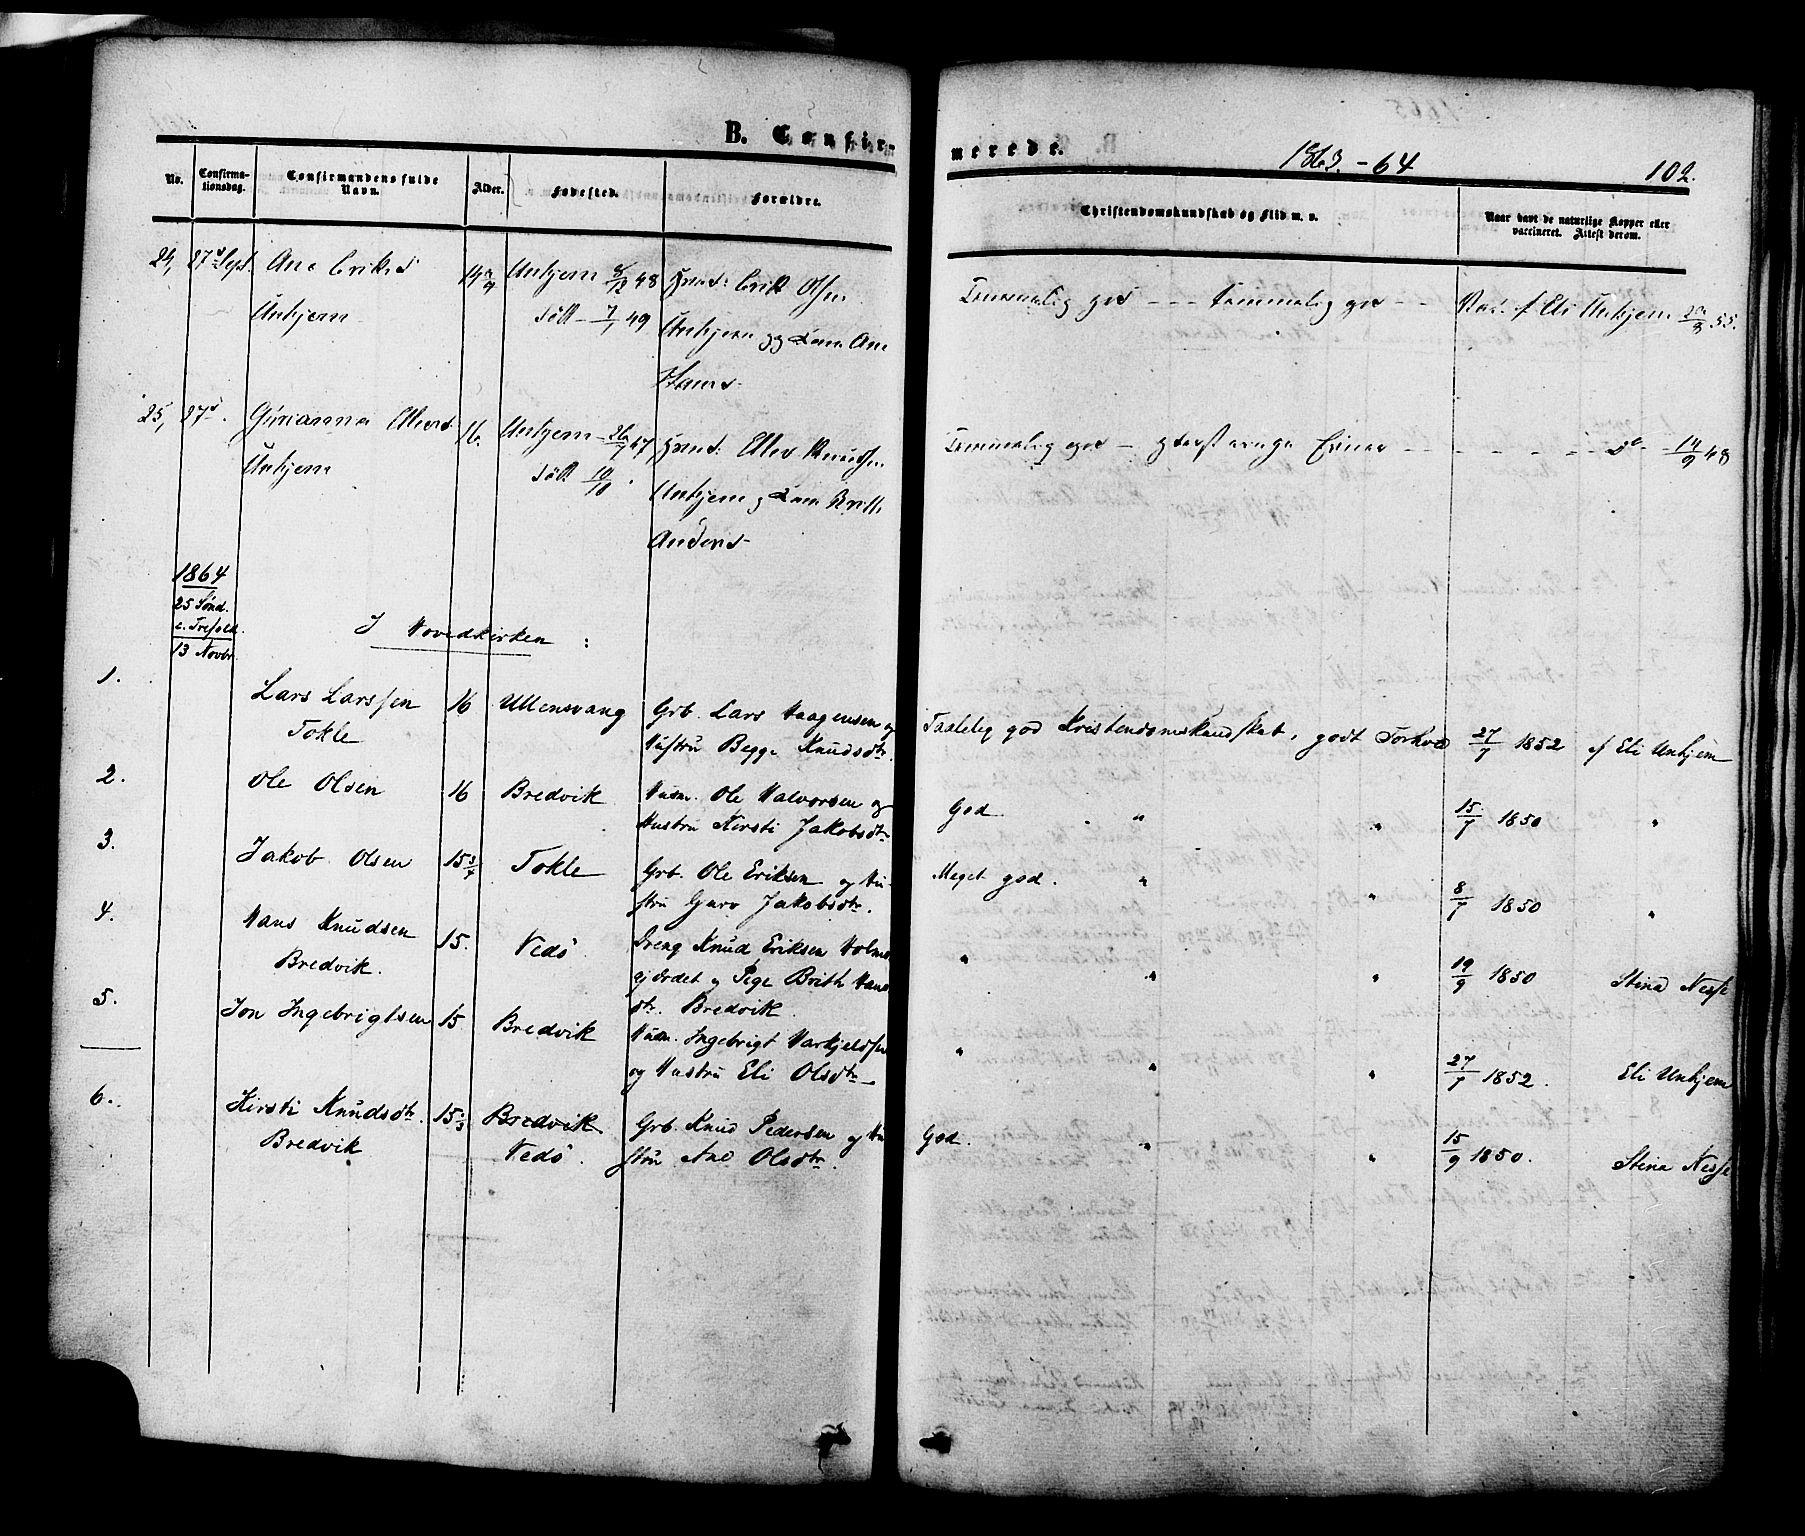 B. Confir-
merede.
1863.-64
102.
No.
Confirma-
tionsdag.
Confirmandens fulde
Navn.
Alder.
Fødested.
Forældre.
Christendomskundskab og Flid m. v.
Naar havt de naturlige Kopper eller
vaccineret. Attest derom.
24, 27d Sept. Ane Eriksd Unhjem 8/12 48 Erik Olsen
Unhjem døbt 7/1 49 Unhjem og Ane
Hansd
Temmelig god - - - temmelig god - - Eli Unhjem 55.
25, 27d. Gurianna Ellersd 16. Unhjem 47
Unhjem døbt Unhjem og Britt
Andersd
Temmelig god - Evner - - - - - do - 14/9 48
1864
25 Sønd.
e. Trefold.
13 Novbr
I Hovedkirken :
1. Lars Larssen 16 Ullensvang Grb. Lars Haagensen og
Tokle Hustru Begge Knudsdtr.
Taalelig god Kristendomskundskab, godt Forhold 27/7 1852 f Eli Unhjem
2. Ole Olsen 16 Bredvik Husm. Ole Halvorsen og
Hustru Kirsti Jakobsdtr
God. " " 15/7 1850 "
3. Jakob Olsen 15 3/4 Tokle Grb. Ole Eriksen og Hu-
stru Guro Jakobsdtr.
Meget god. " " 8/7 1850 "
4. Hans Knudsen 15. Vedø Dreng Knud Eriksen Holms
Bredvik. gjærdet og Pige Brith Hans
dtr. Bredvik.
" " " 19/9 1850 Stina Nesse
5. Jon Ingebrigtsen 15 Bredvik Husm. Ingebrigt
og Hustru Eli Olsdtr
" " " 27/7 1852. Eli Unhjem
6. Kirsti Knudsdtr. Bredvik Grb. Knud Pedersen og Hu
Bredvik Vedø. stru Ane Olsdtr.
God. " " 15/9 1850. Stina Nesse